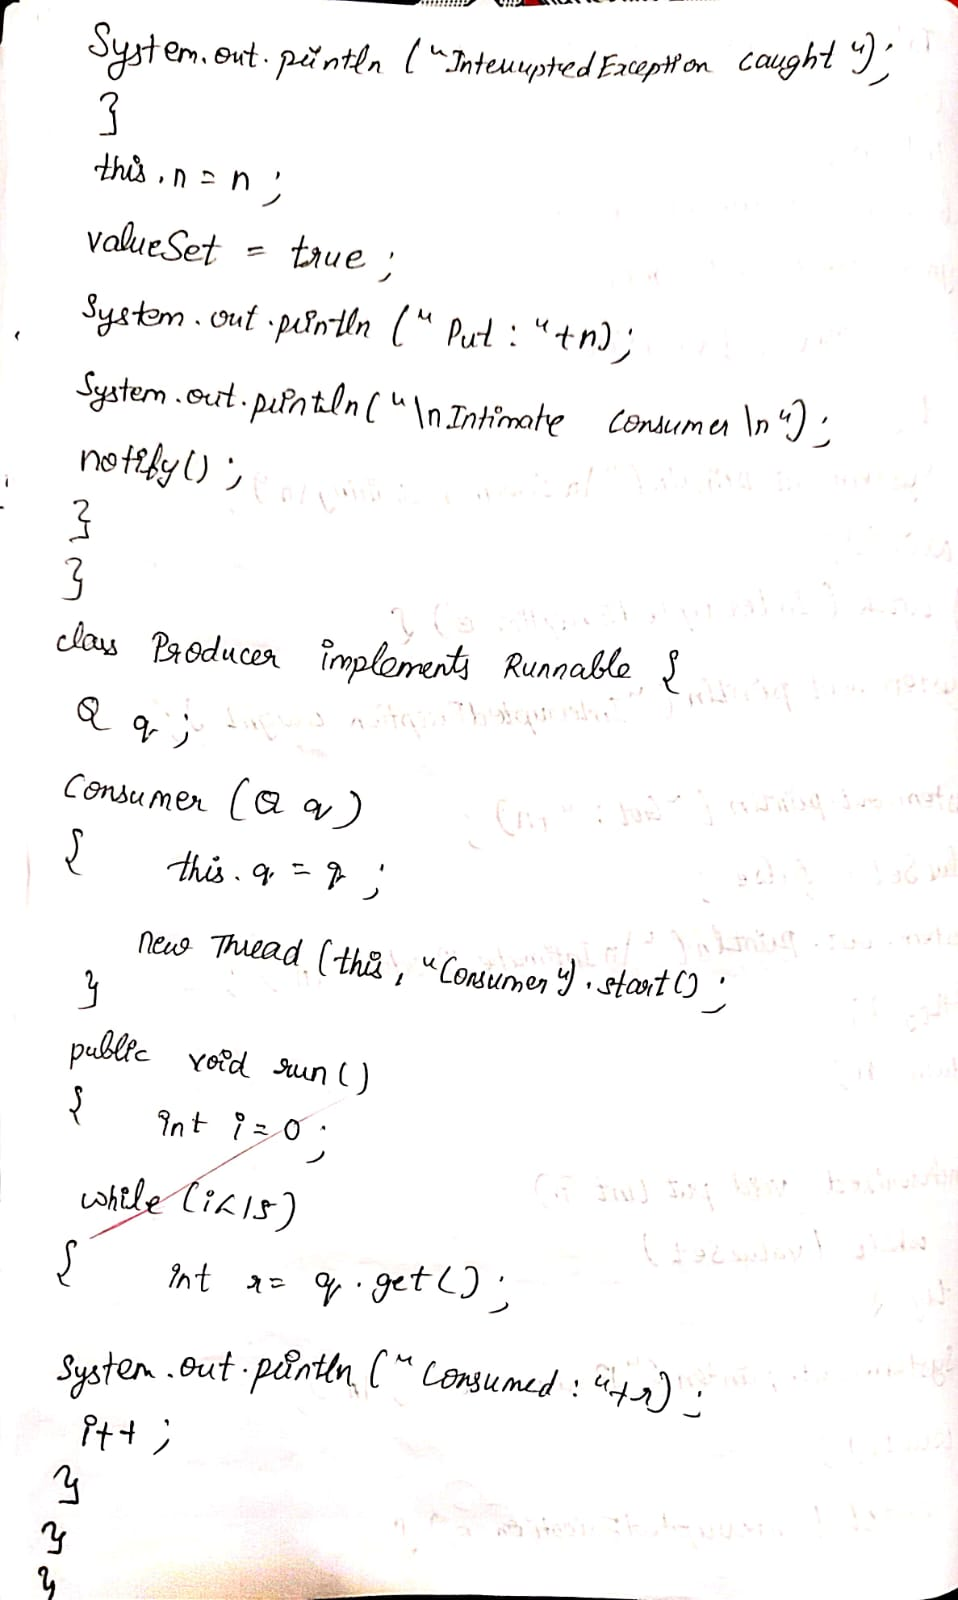 System.out.println ("InterruptedException caught");
}
this.n = n ;
valueSet = true ;
System.out.println (" Put : "+n);
System.out.println("\n Intimate Consumer \n");
notify() ;
}
}
class Producer implements Runnable {
Q q ;
Consumer (Q q)
{ this.q = q ;
new Thread (this, "Consumer").start() ;
}
public void run()
{ int i=0 ;
while (i<15)
{ int r= q.get() ;
System.out.println (" Consumed : "+r) ;
i++ ;
}
}
}